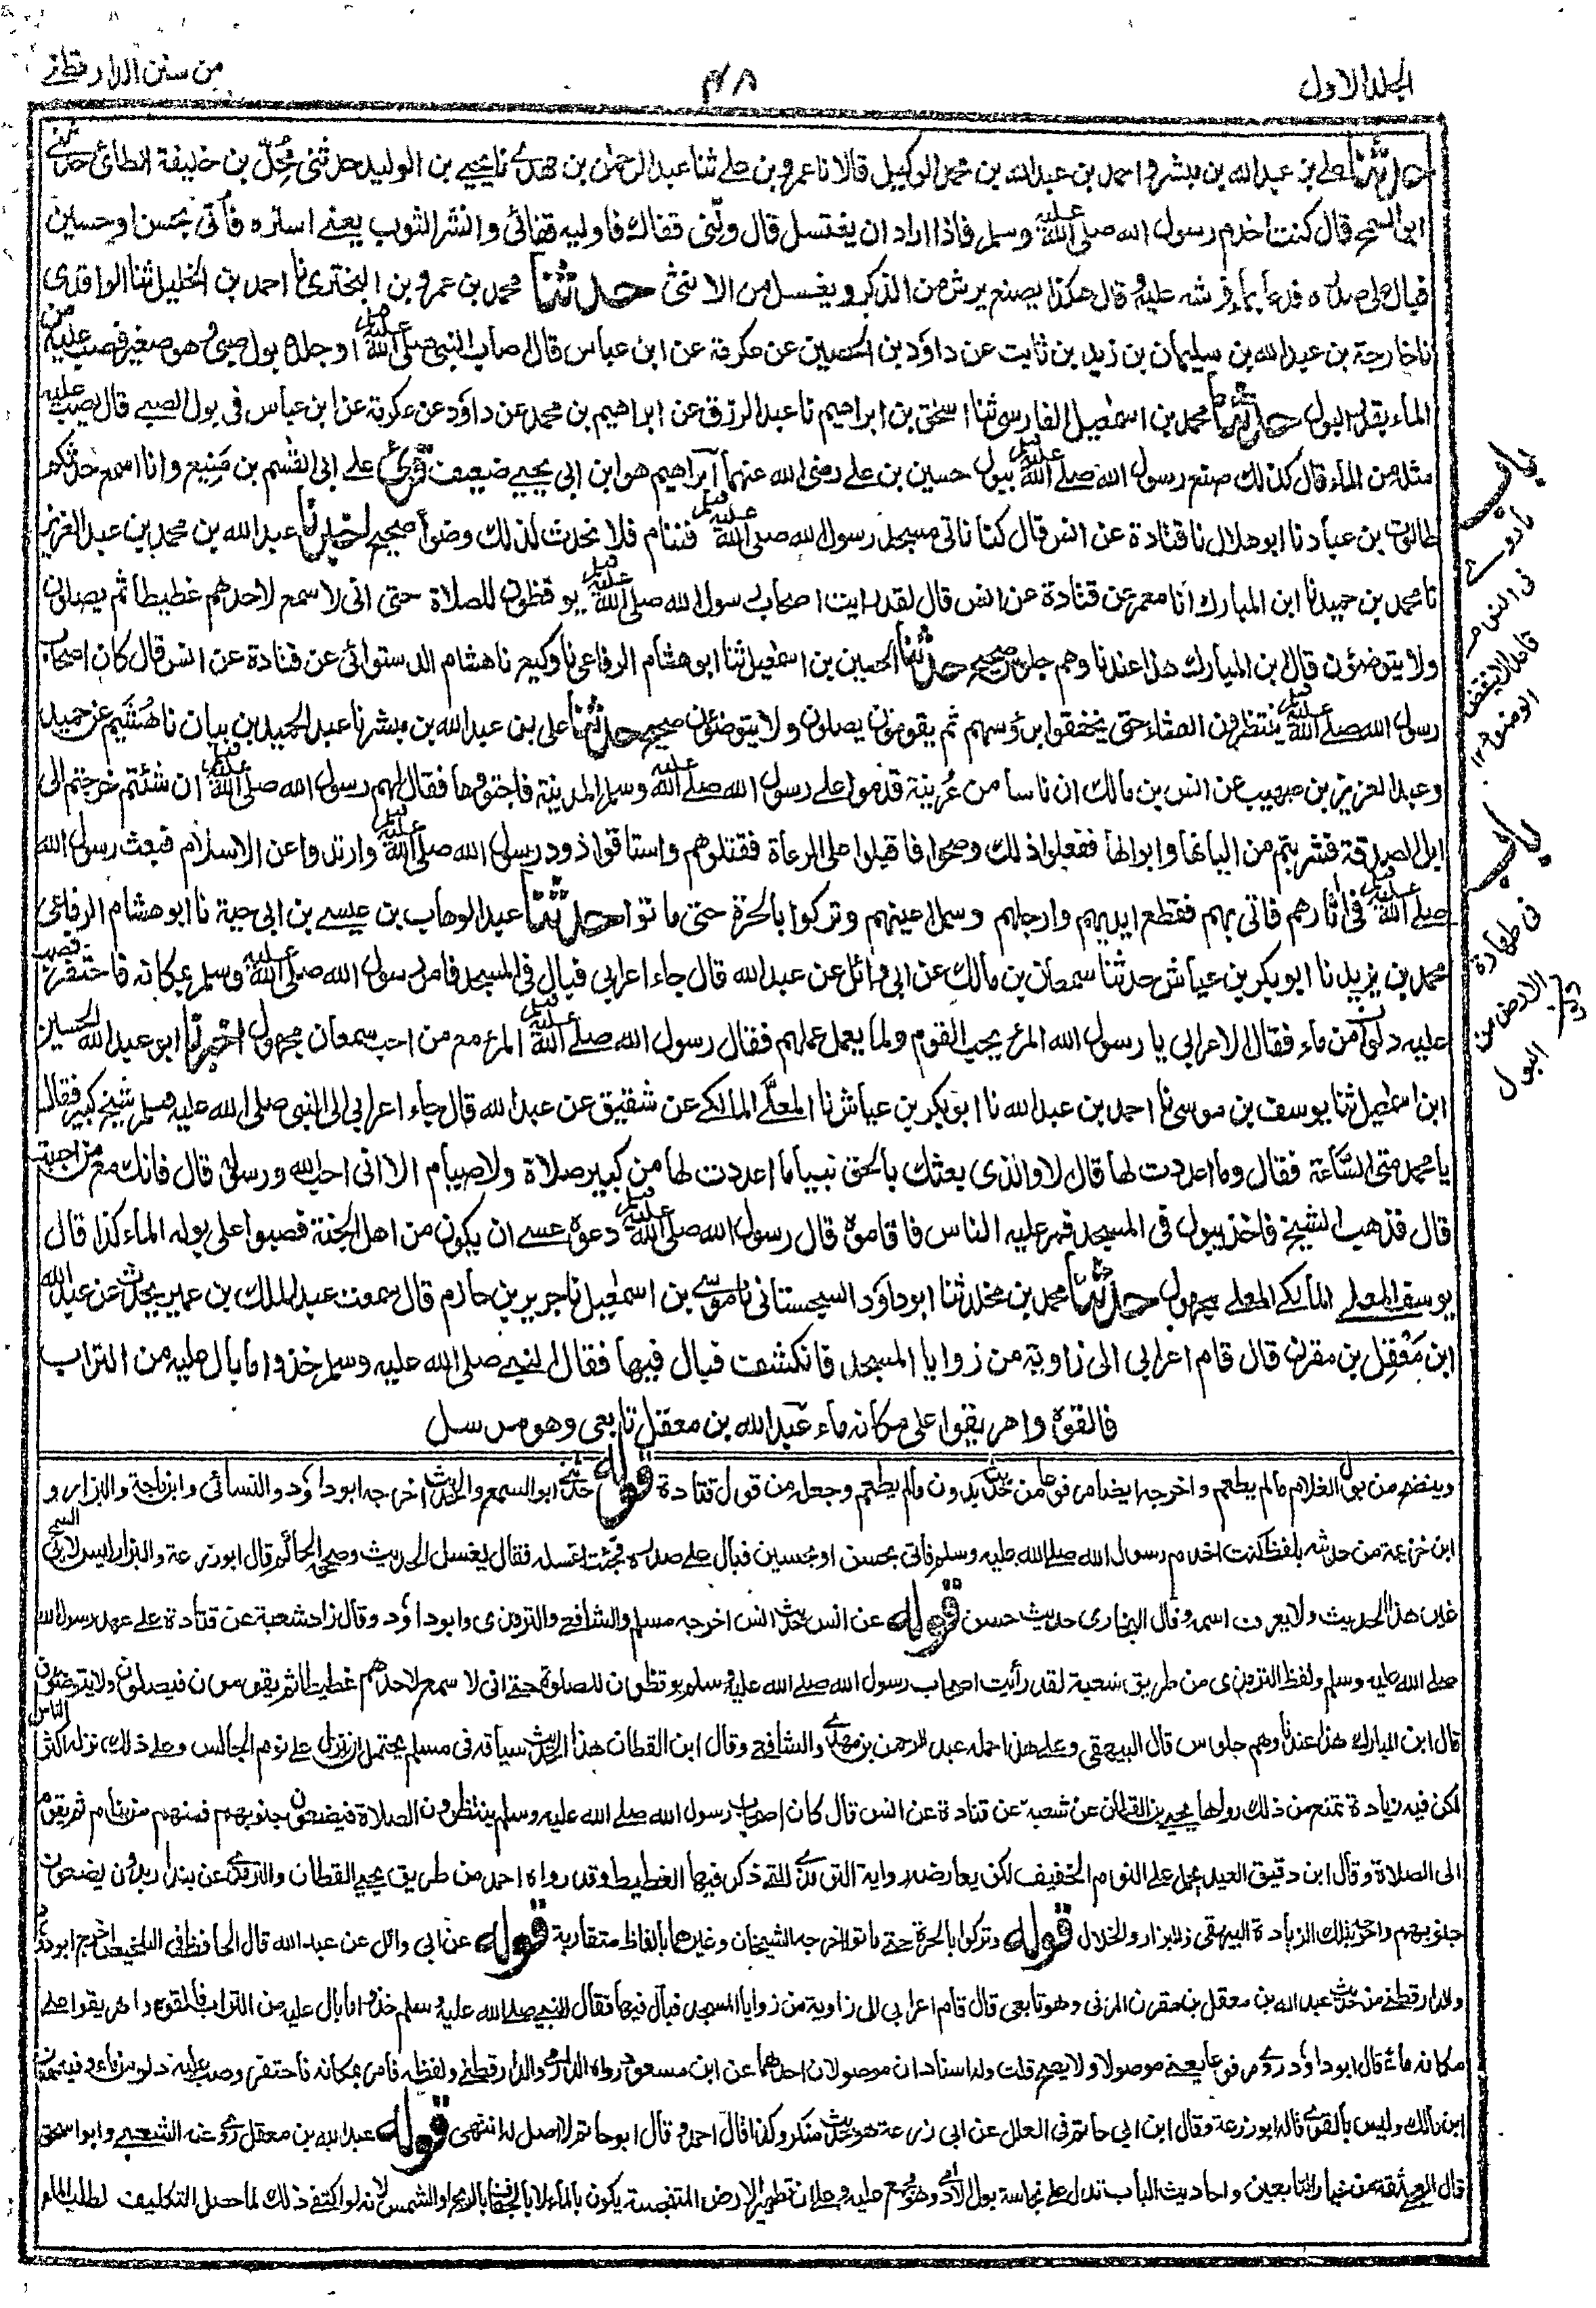 الجلد الاول
٤٨
من سنن الدارقطنے
حدثنا علے بن عبد الله بن مبشر و احمد بن عبد الله بن محمد الوكيل قالا نا عمرو بن علے ثنا عبد الرحمٰن بن مهدے نا يحيے بن الوليد حدثنى مُحِلّ بن خليفة الطائى حدثنے
ابو السمح قال كنت اخدم رسول الله صلى الله عليه وسلم فاذا اراد ان يغتسل قال ولّنى قفاك فاوليه قفائى وانشر الثوب يعنے استره فأتى بحسن او حسين
فبال على صدره فدعا بماء فرشه عليه وقال هكذا يصنع يرش من الذكر ويغسل من الانثى حدثنا محمد بن عمرو بن البخترى نا احمد بن الخليل ثنا الواقدى
نا خارجة بن عبد الله بن سليمان بن زيد بن ثابت عن داؤد بن الحصين عن عكرمة عن ابن عباس قال اصاب النبى صلى الله عليه وسلم او جلده بول صبى وهو صغير فصب عليه من
الماء بقدر البول حدثنا محمد بن اسمٰعيل الفارسى ثنا اسحٰق بن ابراهيم نا عبد الرزق عن ابراهيم بن محمد عن داؤد عن عكرمة عن ابن عباس فى بول الصبے قال يصب عليه
مثله من الماء قال كذلك صنع رسول الله صلے الله عليه وسلم ببول حسين بن على رضى الله عنهما ابراهيم هو ابن ابى يحيے ضعيف قرئ علے ابى القٰسم بن منيع وانا اسمع حدثكم
طالوت بن عباد نا ابو هلال نا قتادة عن انس قال كنا ناتى مسجد رسول الله صلى الله عليه وسلم فننام فلا نحدث لذلك وضوأ صحيح اخبرنا عبد الله بن محمد بن عبد العزيز
نا محمد بن حميد نا ابن المبارك انا معمر عن قتادة عن انس قال لقد رايت اصحاب رسول الله صلى الله عليه وسلم يوقظون للصلاة حتى انى لاسمع لاحدهم غطيطا ثم يصلون
ولا يتوضئون قال ابن المبارك هذا عندنا وهم جلوس صحيح حدثنا الحسين بن اسمٰعيل ثنا ابو هشام الرفاعى نا وكيع نا هشام الدستوائى عن قتادة عن انس قال كان اصحاب
رسول الله صلے الله عليه وسلم ينتظرون العشاء حتى يخفقوا برؤسهم ثم يقومون يصلون ولا يتوضئون صحيح حدثنا على بن عبد الله بن مبشر نا عبد الحميد بن بيان نا هُشَيم عن حميد
وعبد العزيز بن صهيب عن انس بن مالك ان ناسا من عُرينة قدموا على رسول الله صلے الله عليه وسلم المدينة فاجتووها فقال لهم رسول الله صلى الله عليه وسلم ان شئتم خرجتم الى
ابل الصدقة فشربتم من البانها وابوالها ففعلوا ذلك وصحوا فاقبلوا على الرعاة فقتلوهم واستاقوا ذود رسول الله صلى الله عليه وسلم وارتدوا عن الاسلام فبعث رسول الله
صلے الله عليه وسلم فى اٰثارهم فاتى بهم فقطع ايديهم وارجلهم وسمل اعينهم وتركوا بالحرة حتى ماتوا حدثنا عبد الوهاب بن عيسے بن ابى حية نا ابو هشام الرفاعى
محمد بن يزيد نا ابو بكر بن عياش حدثنا سمعان بن مالك عن ابى وائل عن عبد الله قال جاء اعرابى فبال فى المسجد فامر رسول الله صلى الله عليه وسلم بمكانه فاحتفر فصب
عليه دلوٌ من ماء فقال الاعرابى يا رسول الله المرء يحب القوم ولما يعمل عملهم فقال رسول الله صلے الله عليه وسلم المرء مع من احب سمعان مجهول اخبرنا ابو عبد الله الحسين
ابن اسمٰعيل ثنا يوسف بن موسىٰ نا احمد بن عبد الله نا ابو بكر بن عياش نا المعلّے المالكے عن شقيق عن عبد الله قال جاء اعرابى الى النبى صلى الله عليه وسلم شيخ كبير فقال
يا محمد متى السّاعة فقال وما اعددت لها قال لا والذى بعثك بالحق نبيا ما اعددت لها من كبير صلاة ولا صيام الا انى احب الله ورسوله قال فانك مع من احببت
قال فذهب الشيخ فاخذ يبول فى المسجد فمر عليه الناس فاقاموه قال رسول الله صلى الله عليه وسلم دعوه عسے ان يكون من اهل الجنة فصبوا على بوله الماء كذا قال
يوسف المعلے المالكے المعلے مجهول حدثنا محمد بن مخلد ثنا ابو داؤد السجستانى نا موسے بن اسمٰعيل نا جرير بن حازم قال سمعت عبد الملك بن عمير يحدث عن عبد الله
ابن مَعْقِل بن مقرن قال قام اعرابى الى زاوية من زوايا المسجد فانكشف فبال فيها فقال النبے صلى الله عليه وسلم خذوا ما بال عليه من التراب
فالقوه واهريقوا على مكانه ماء عبد الله بن معقل تابعى وهو مرسل
باب
ماروے
فى النوم
قاعدا لا ينقض
الوضوء ١٢
باب
فى طهارة
الارض من
البول
وينضح من بول الغلام مالم يطعم واخرجه ايضا مرفوعا من حديثه بدون مالم يطعم وجعله من قول قتادة قوله حدثنى ابو السمح والحديث اخرجه ابوداؤد والنسائى وابن ماجة والبزار و
ابن خزيمة من حديثه بلفظ كنت اخدم رسول الله صلے الله عليه وسلم فاتى بحسن او بحسين فبال علے صدره فجئت اغسله فقال يغسل الحديث وصححه الحاكم قال ابو زرعة والبزار ليس لابى السمح
غير هذا الحديث ولا يعرف اسمه وقال البخارى حديث حسن قوله عن انس حديث انس اخرجه مسلم والشافعے والترمذى وابوداؤد وقال زاد شعبة عن قتادة علے عهد رسول الله
صلے الله عليه وسلم ولفظ الترمذى من طريق شعبة لقد رأيت اصحاب رسول الله صلے الله عليه وسلم يوقظون للصلوة حتے انى لاسمع لاحدهم غطيطا ثم يقومون فيصلون ولا يتوضئون
قال ابن المبارك هذا عندنا وهم جلوس قال البيهقى وعلے هذا حمله عبد الرحمن بن مهدے والشافعے وقال ابن القطان هذا الحديث سياقه فى مسلم يحتمل ان ينزل علے نوم الجالس وعلے ذلك نزله اكثر الناس
لكن فيه زيادة تمنع من ذلك رواها يحيے بن القطان عن شعبة عن قتادة عن انس قال كان اصحاب رسول الله صلے الله عليه وسلم ينتظرون الصلاة فيضعون جنوبهم فمنهم من ينام ثم يقوم
الى الصلاة وقال ابن دقيق العيد يحمل علے النوم الخفيف لكن يعارضه رواية الترمذے التے ذكر فيها الغطيط وقد رواه احمد من طريق يحيے القطان والترمذے عن بندار بدون يضعون
جنوبهم واخرج بتلك الزيادة البيهقى والبزار والخلال قوله وتركوا بالحرة حتے ماتوا اخرجه الشيخان وغيرهما بالفاظ متقاربة قوله عن ابى وائل عن عبد الله قال الحافظ فى التلخيص اخرج ابوداؤد
والدارقطنے من حديث عبد الله بن معقل بن مقرن المزنى وهو تابعى قال قام اعرابى الى زاوية من زوايا المسجد فبال فيها فقال النبے صلے الله عليه وسلم خذوا ما بال عليه من التراب فالقوه واهريقوا علے
مكانه ماء قال ابوداؤد روے مرفوعا يعنے موصولا ولا يصح قلت وله اسنادان موصولان احدهما عن ابن مسعود رواه الدارمے والدارقطنے ولفظه فامر بمكانه فاحتفر وصب عليه دلو من ماء وفيه سمعان
ابن مالك وليس بالقوے قاله ابو زرعة وقال ابن ابى حاتم فى العلل عن ابى زرعة هو حديث منكر وكذا قال احمد و قال ابو حاتم لا اصل له انتهى قوله عبد الله بن معقل روے عنه الشعبے وابو اسحٰق
قال العجلے ثقة من خيار التابعين واحاديث الباب تدل علے نجاسة بول الآدمى وهو مجمع عليه وعلے ان تطهير الارض المتنجسة يكون بالماء لا بالجفاف بالريح او الشمس لانه لو كفے ذلك لما حصل التكليف لطلب الماء